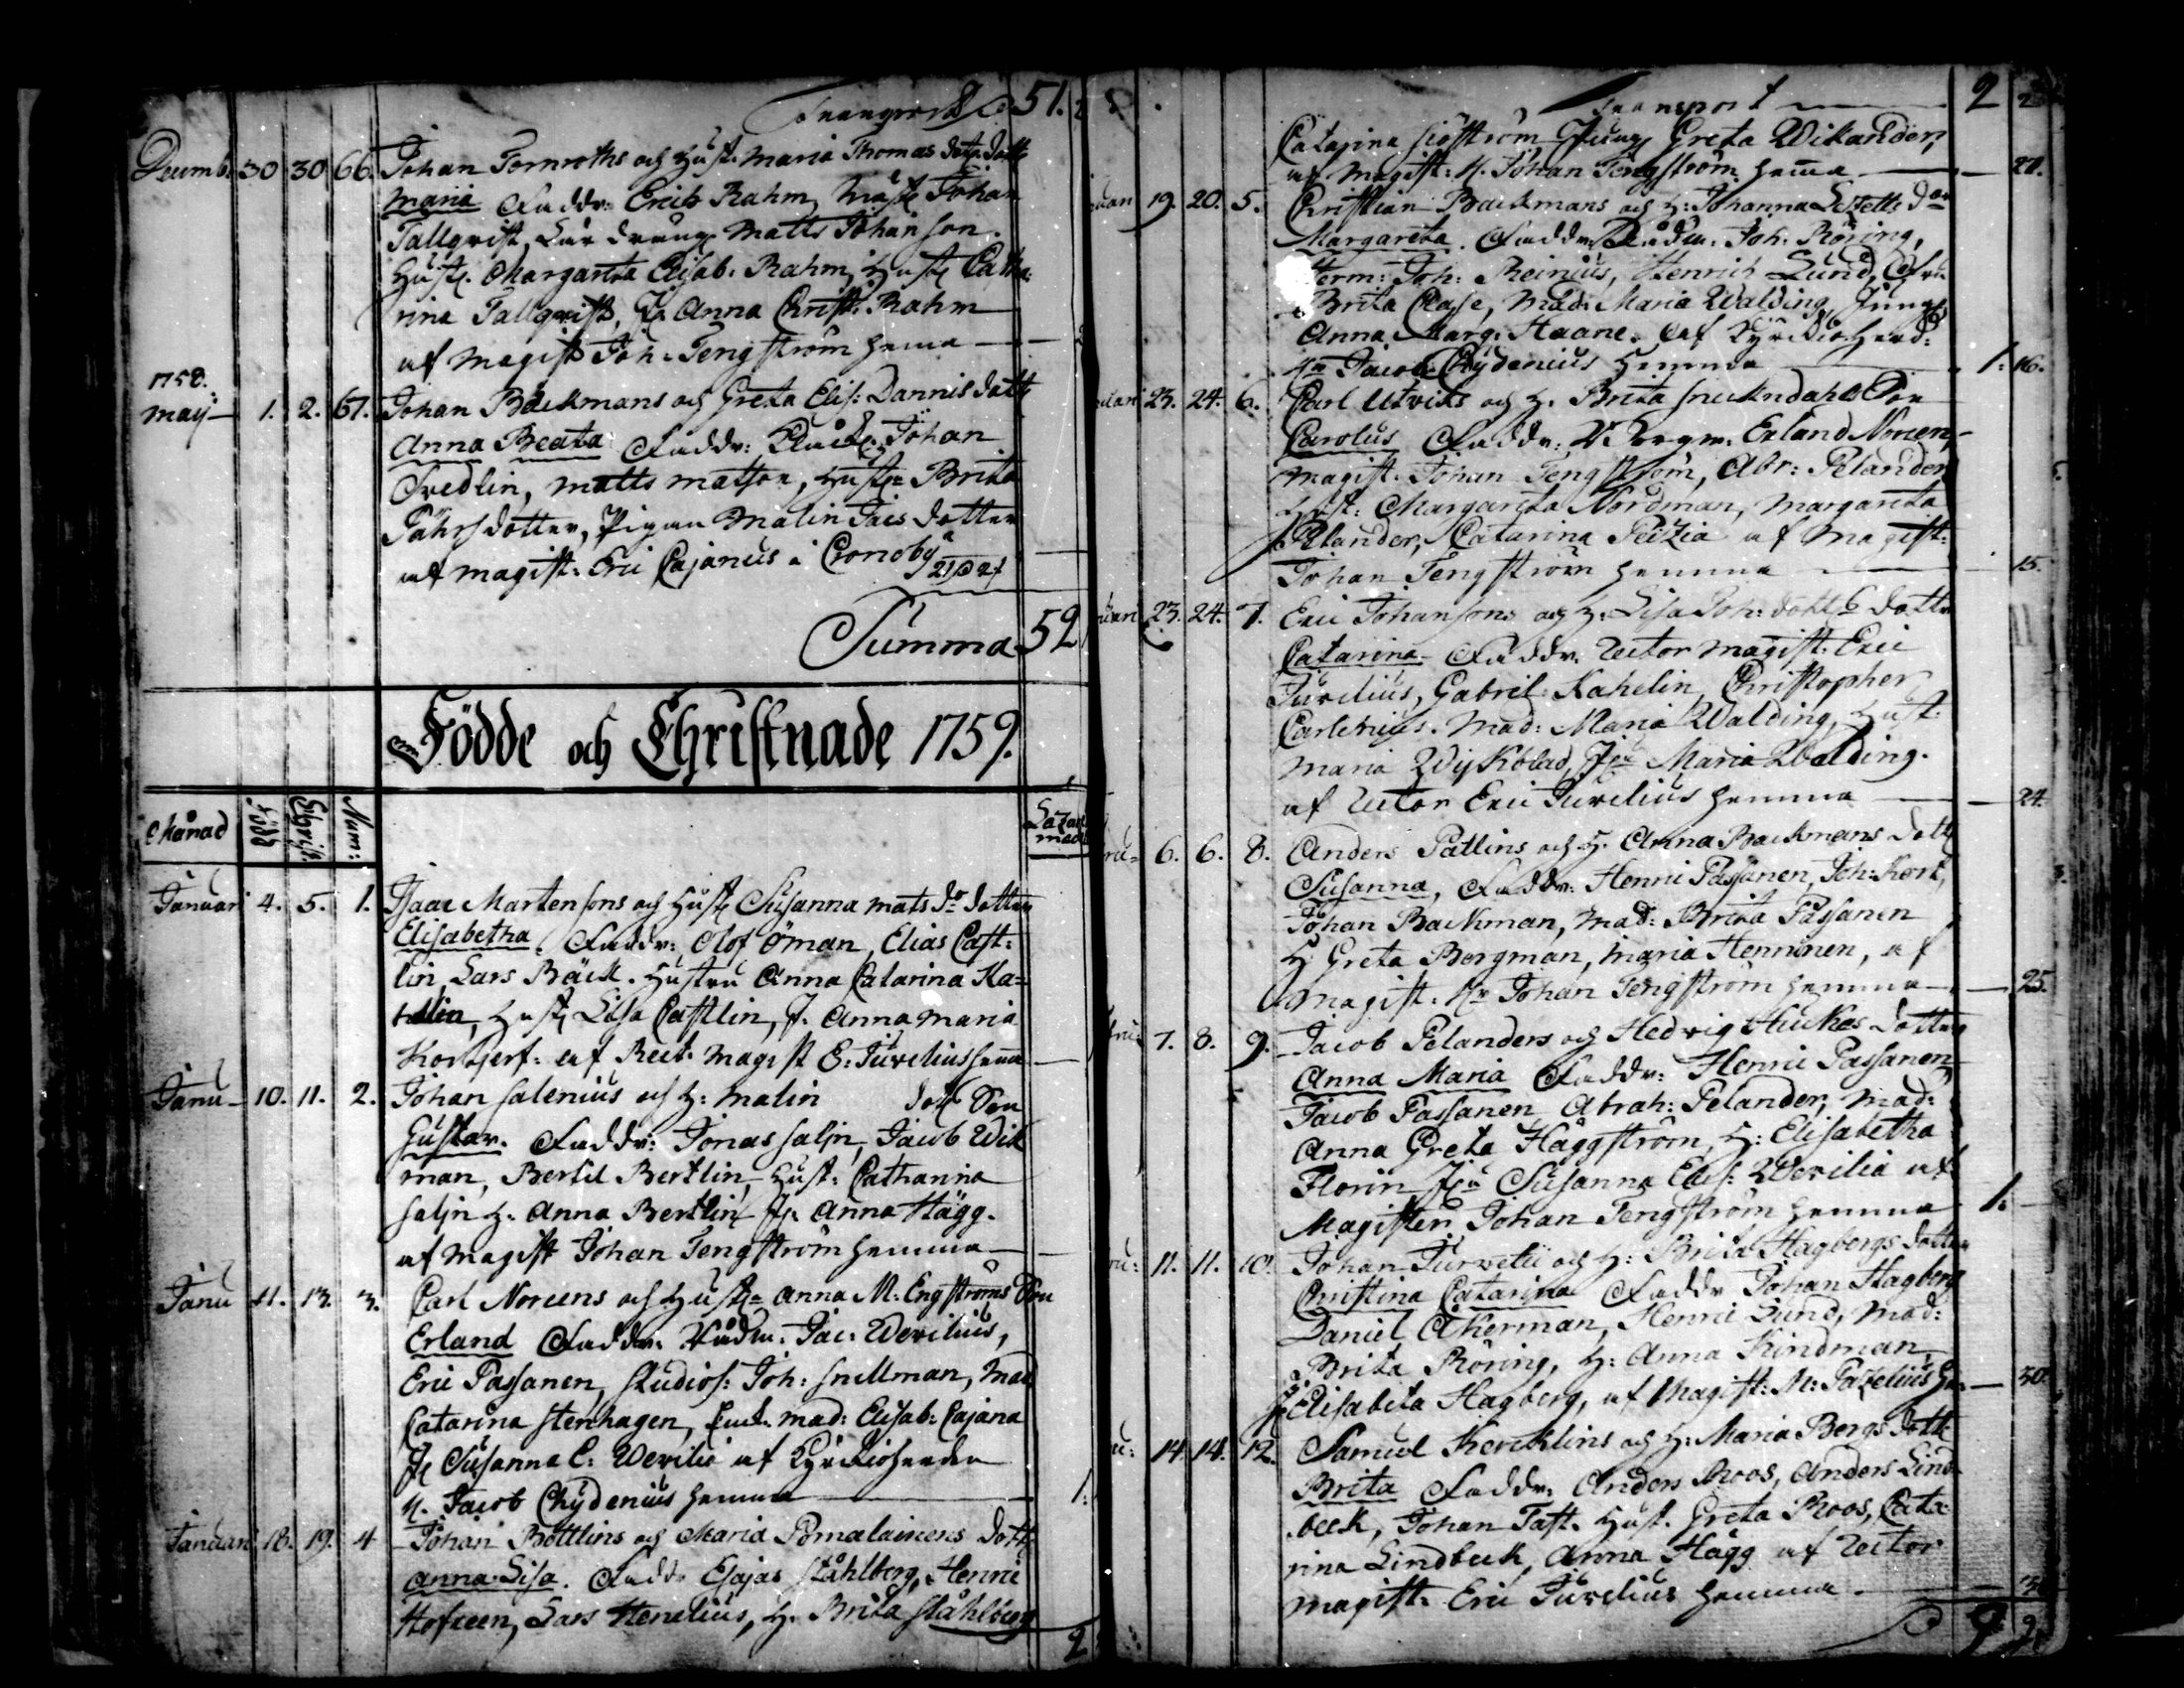 Transport 51.
Decemb. 30 30 66. Johan Tornroths och Hust. Maria Thomas dott. dott
Maria Faddr. Erich Rahm, Johan
Tallqvist, Matts Johanson.
Hust. Margareta Elisab. Rahm, Hust Catha
rina Tallqvist, Anna Christ. Rahm
af Magist Joh. Tengström hemma
1758.
May 1. 2. 67. Johan Backmans och Greta Elis: Dannis dott
Anna Beata Faddr: Johan
Fredlin, Matts Matson, Hustr Brita
dotter, Pigan Malin Jacs dotter
af Magist: Eric Cajanus i Cronoby
Summa 52
Födde och Christnade 1759.
Månad Född Christ. Num:
Januari 4. 5. 1. Isaac Martensons och Hust Susanna Mats dr dotter
Elisabetha. Faddr: Olof Öman, Elias Cast-
lin, Lars Bäck. Hustru Anna Catarina Ka-
helin, Hust Lisa Castlin, J. Anna Maria
af Rect. Magist E: Jurelius hema
Janu 10. 11. 2. Johan Salenius och H: Malin dott Son
Gustav. Faddr: Jonas Saljn, Jacob Wik
man, Bertil Bertlin, Hust: Catharina
Saljn H. Anna Bertlin Jf. Anna Hägg.
af Magist Johan Tengström hemma
Janu 11. 13. 3. Carl Noreens och Hustr Anna M. Engströms Son
Erland Faddr. Rådm. Jac: Werilius,
Eric Passanen, Studios: Joh: Snellman, Mad
Catarina Stenhagen, Mad: Elisab: Cajana
Jf Susanna C: Werilie af Kyrkioherden
H. Jacob Chydenius hemma 1.
Januari 18. 19. 4 Johan Böttlins och Maria Pomalainens dott
Anna Lisa. Faddr Esajas Ståhlberg, Henric
Hofreen, Lars Henelius, H. Brita Ståhlberg
2
Transport 2
Catarina Siöström, Jung Greta Wikander,
af Magist: H. Johan Tengström hema 20.
19. 20. 5. Christian Backmans och H: Johanna Lizetts dr
Margareta. Faddr. Rådm. Joh. Röring,
Joh: Reinius, Henrich Lund, Fru
Brita Clase, Mad: Maria Walding, Jungf
Anna Marg. Haane. af Kyrkioherd:
Hr Jacob Chydenius hemma 1. 16.
23. 24. 6. Carl Utriks och H. Brita Snickndahls Son
Carolus Faddr: Erland Noreen,
Magist. Johan Tengström, Abr: Pelander
Hust: Margareta Nordman, Margareta
Pelander, Catarina Peizia af Magist:
Johan Tengström hemma 15.
23. 24. 7. Eric Johansons och H: Lisa Joh: dotts dottr
Catarina Faddr. Rector Magist. Eric
Jurelius, Gabriel Kahelin, Christopher
Mad: Maria Walding, Hust:
Maria Wijkblad, Jfr Maria Walding.
af Rector Eric Jurelius hemma 24.
6. 6. 8. Anders Patlins och H. Anna Backmans dott
Susanna, Faddr: Henric Passanen, Joh: Kork,
Johan Backman, Mad: Brita Passanen
H. Greta Bergman, Maria Henninen, af
Magist. Hr Johan Tengström hemma 25.
7. 8. 9. Jacob Pelanders och Hedvig Huckas dotter
Anna Maria Faddr: Henric Passanen
Jacob Passanen Abrah: Pelander, Mad:
Anna Greta Häggström, H: Elisabetha
Florin Jfr Susanna Elis: Werilia af
Magisten Johan Tengström hemma 1.
11. 11. 10. Johan Jurvelii och H: Brita Hagbergs dotter
Christina Catarina Faddr Johan Hagberg
Daniel Åkerman, Henric Lund, Mad:
Brita Röring, H: Anna Kindman,
Elisabeta Hagberg, af Magist: M: Pazelius 30.
14. 14. 12. Samuel Kercklins och H: Maria Bergs dott
Brita Faddr. Anders Roos, Anders Lind-
beck, Johan Tast. Hust. Greta Roos, Cata-
rina Lindbeck, Anna Hägg af Rector
Magist. Eric Jurelius hemma